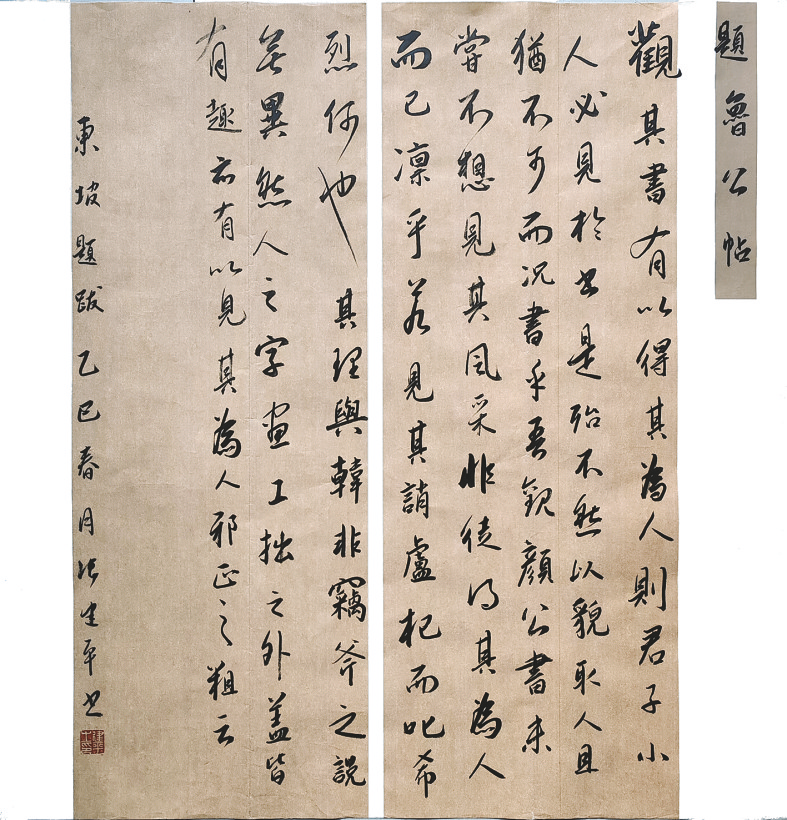 題魯公帖
觀其書有以得其為人則君子小
人必見於書是殆不然以貌取人且
猶不可而况書乎吾觀顏公書未
嘗不想見其風采非徒得其為人
而已凛乎若見其誚盧杞而叱希
烈何也其理與韓非竊斧之說
無異然人之字畫工拙之外蓋皆
有趣亦有以見其為人邪正之粗云
東坡題跋乙巳春月張平書